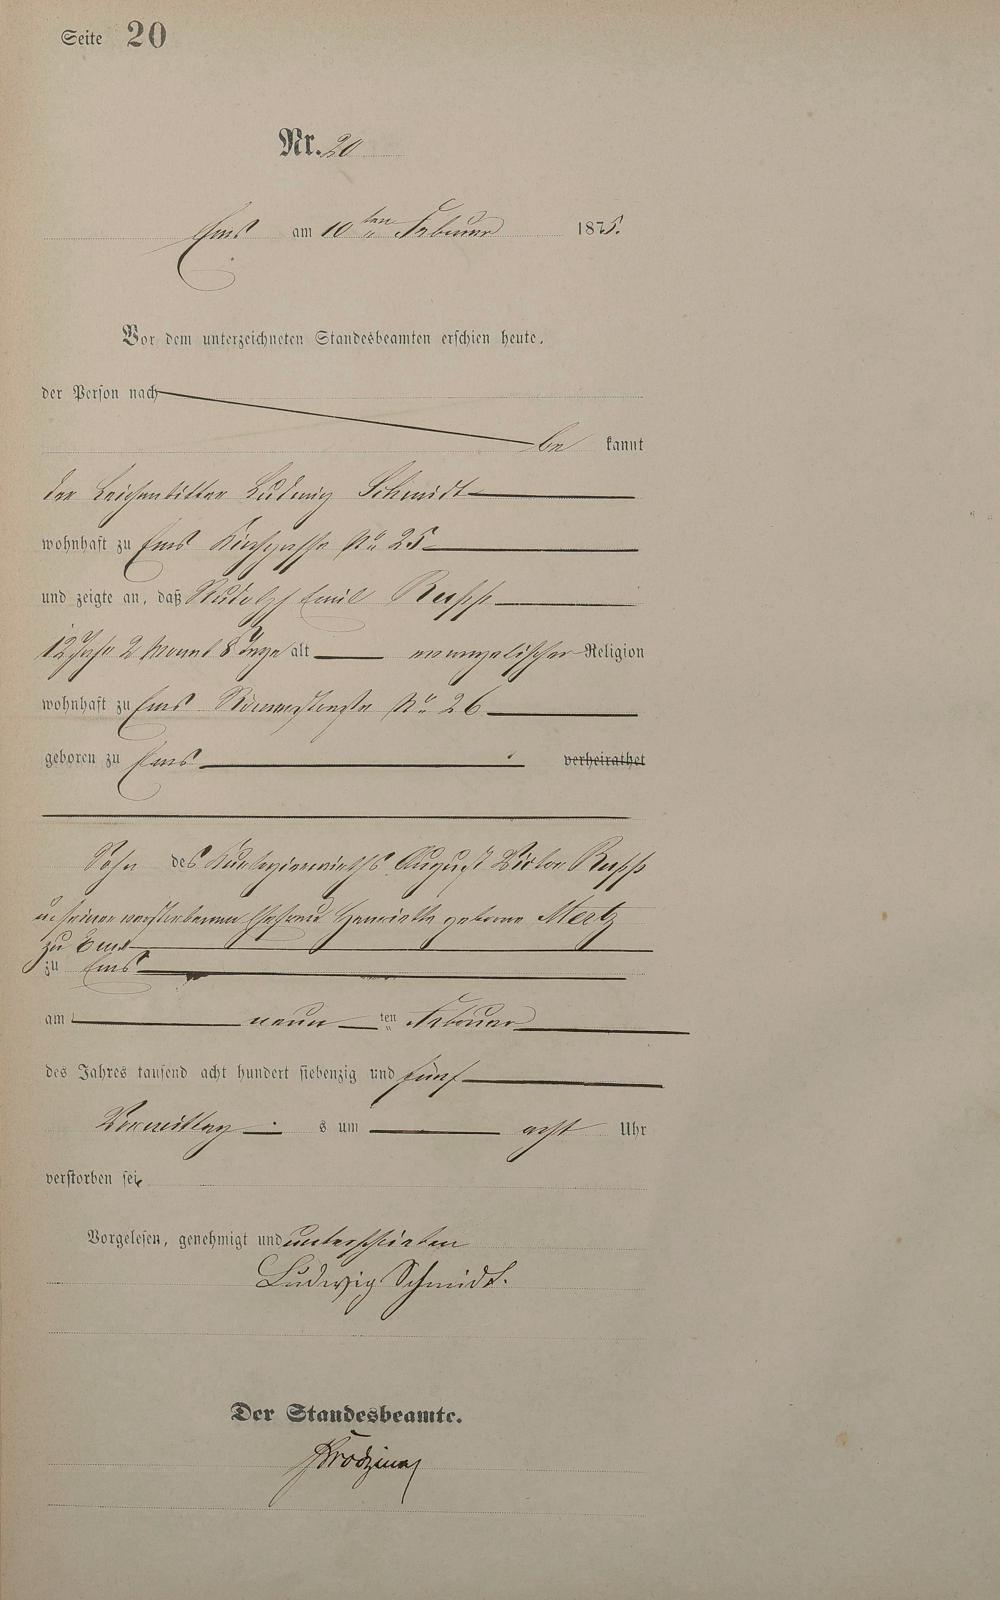 Seite 20
Nr. 20
Ems am 10ten Februar 1875.
Vor dem unterzeichneten Standesbeamten erschien heute,
der Person nach
be kannt
der Leichenbitter Ludwig Schmidt
wohnhaft zu Ems Kirchgasse No 25
und zeigte an, daß Rudolph Emil Rupp
12 Jahr 2 Monat 8 Tage alt evangelischer Religion
wohnhaft zu Ems Römerstraße No 26
geboren zu Ems verheirathet
Sohn des Kurlogierwirths August Victor Rupp
u. seiner verstorbenen Ehefrau Henriette geborne Mertz
zu Ems
zu Ems
am neun ten Februar
des Jahres tausend acht hundert siebenzig und fünf
Vormittag s um acht Uhr
verstorben sei.
Vorgelesen, genehmigt und unterschrieben
Ludwig Schmidt.
Der Standesbeamte.